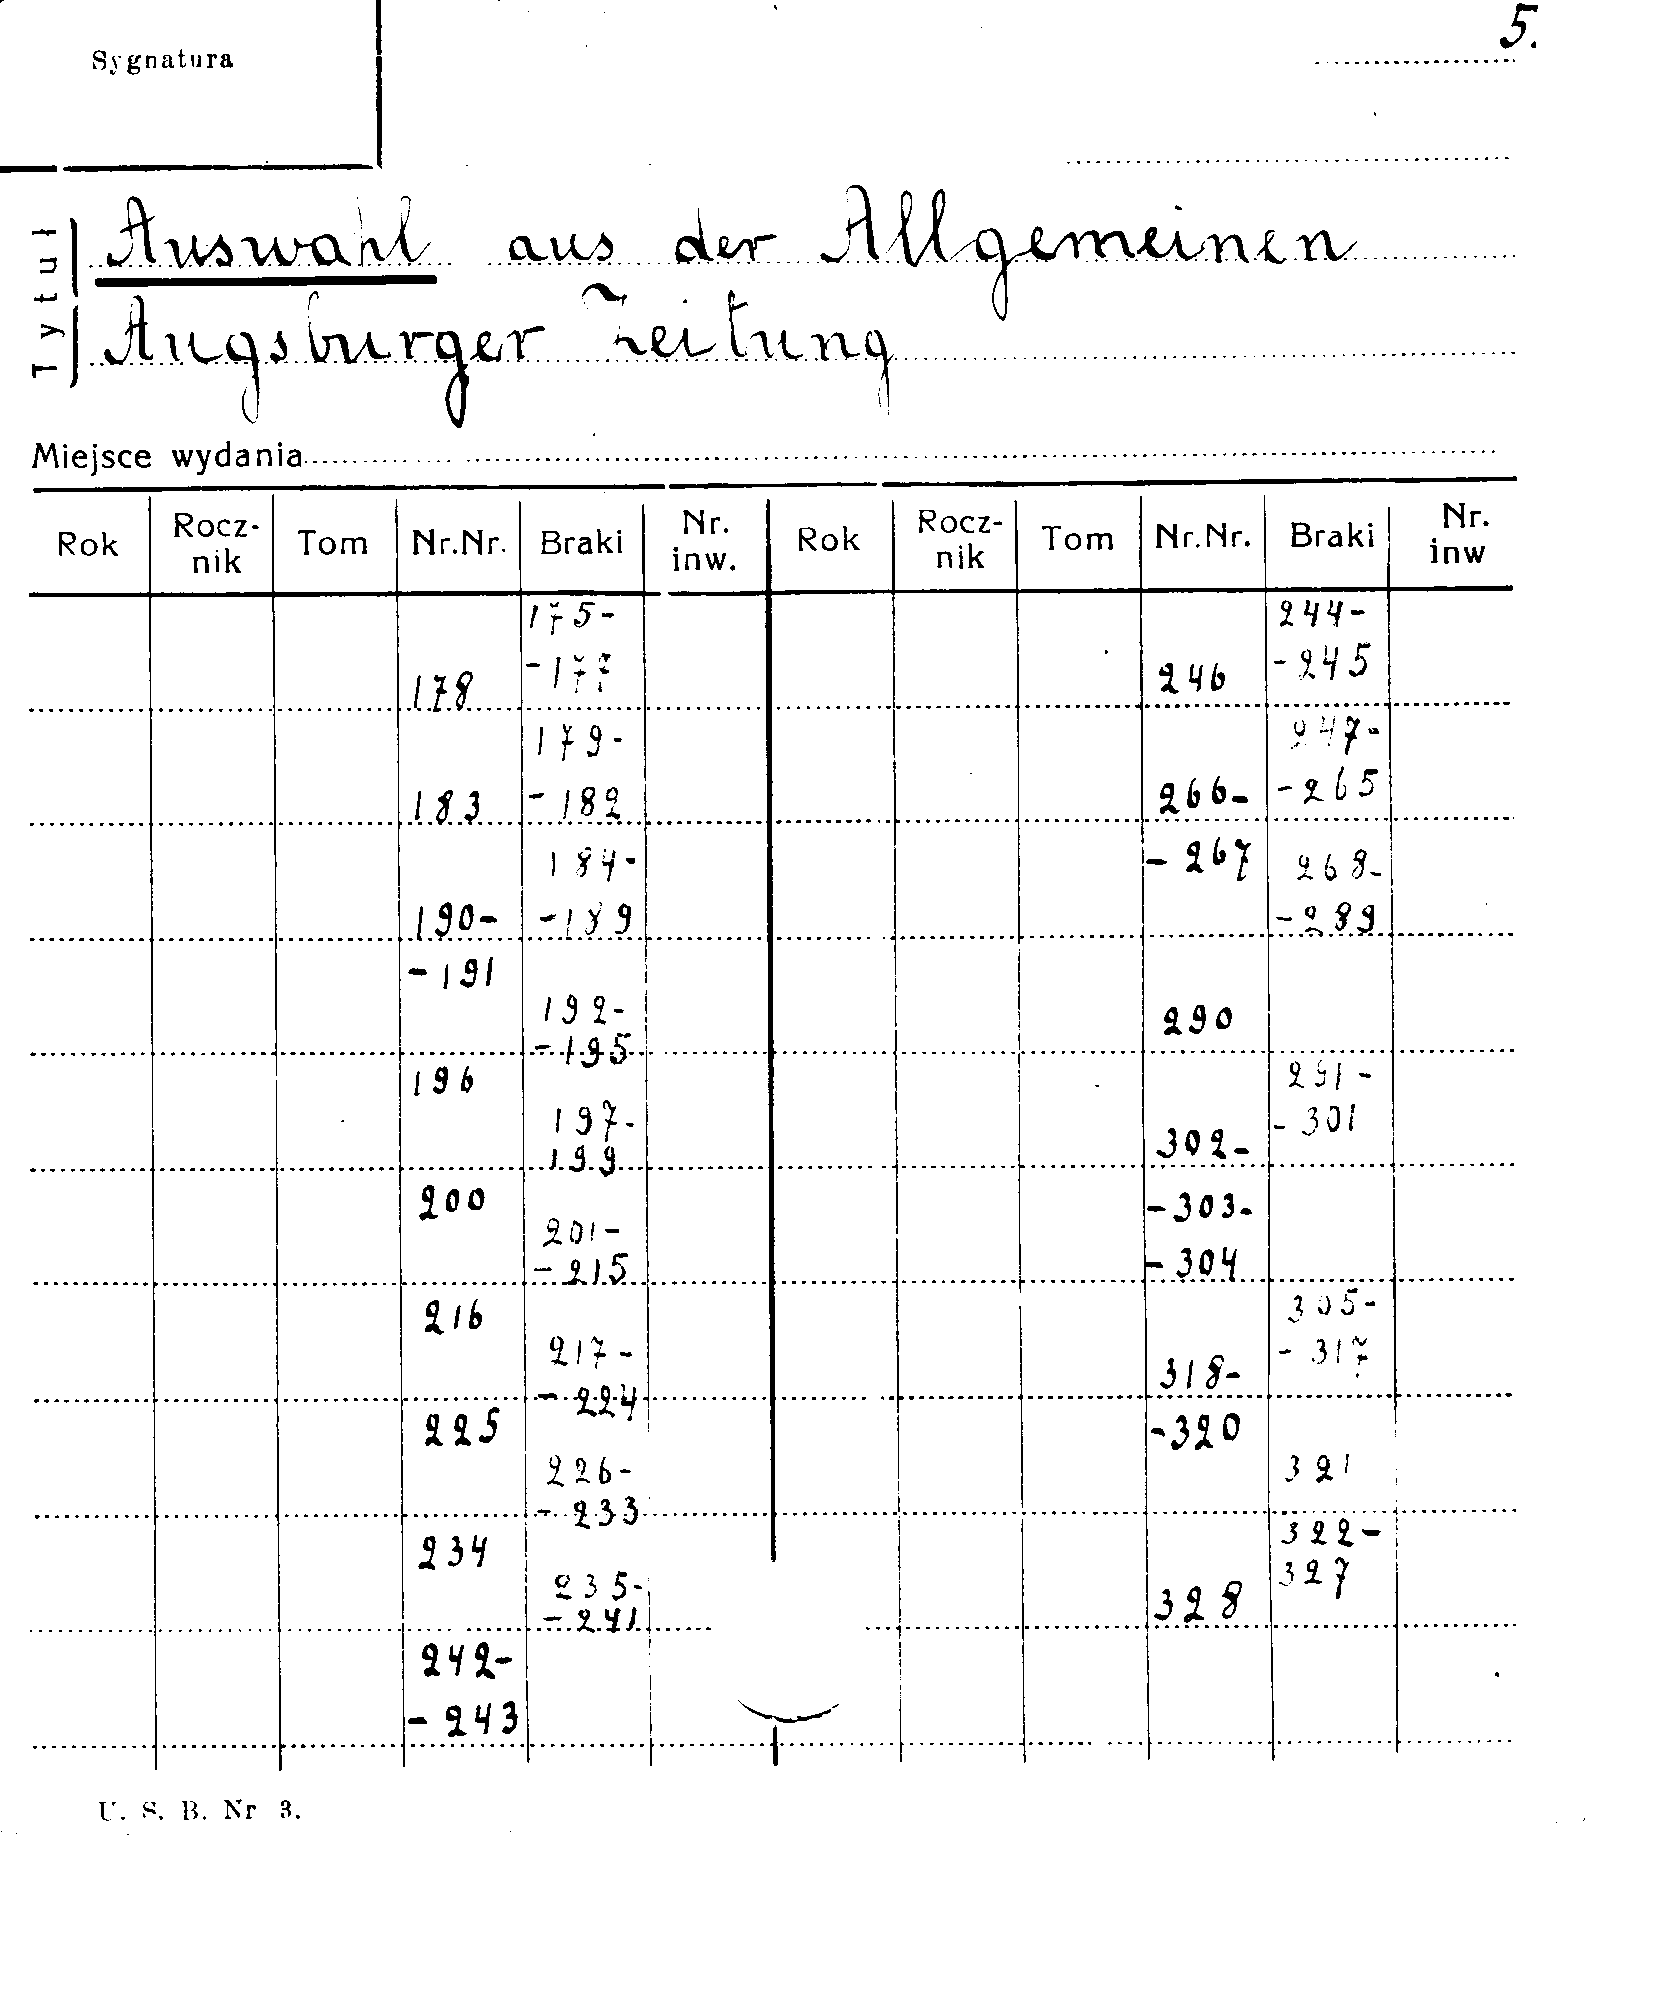 5.
Sygnatura
Tytuł
Auswahl aus der Allgemeinen
Augsburger Zeitung
Miejsce wydania
Rok Rocz-nik Tom Nr.Nr. Braki Nr. inw. Rok Rocz-nik Tom Nr.Nr. Braki Nr. inw
175-
-177
178
179-
-182
183
184-
-189
190-
-191
192-
-195
196
197-
199
200
201-
-215
216
217-
-224
225
226-
-233
234
235-
-241
242-
-243
244-
-245
246
247-
-265
266-
-267
268-
-289
290
291-
-301
302-
-303-
-304
305-
-317
318-
-320
321
322-
327
328
U. S. B. Nr 3.